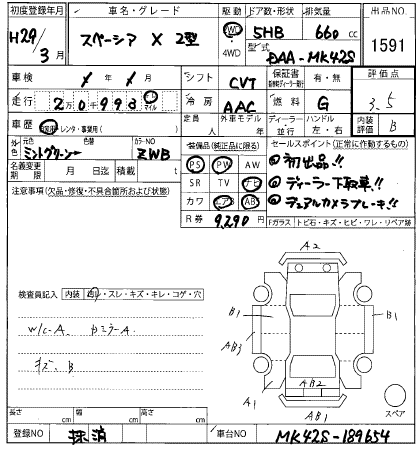 初度登録年月 車名・グレード ドア数・形状 排気量 出品NO
H29/3月 スペーシア X 2型 2WD 4WD 5HB 660 cc 1591
型式 DAA-MK42S
車検 年 月 シフト CVT 保証書 有・無 評価点
走行 2万0993 キロ マイル 冷房 AAC 燃料 G 3.5
車歴 自家用 レンタ・事業用( ) 定員 人 外車モデル 年 ディーラー 並行 ハンドル 左・右 内装 B
外色 元色 ミントグリーン 色替 カラーNO ZWB 装備品(純正品に限る) セールスポイント(正常に作動するもの)
名義変更期限 月 日迄 積載 t PS PW AW ◎初出品!!
注意事項(欠品・修復・不具合箇所および状態) SR TV ナビ ◎ディーラー下取車!!
カワ エアB ABS ◎デュアルカメラブレーキ!!
R券 9,290 Fガラス トビ石・キズ・ヒビ・ワレ・リペア跡
A2
検査員記入 内装 スレ・キズ・キレ・コゲ・穴
B1 B1
W/C-A カミラーA
AB3
キズ、B
A1 AB2
スペア
長さ cm 幅 cm 高さ cm AB1
登録NO 抹消 車台NO MK42S-189654